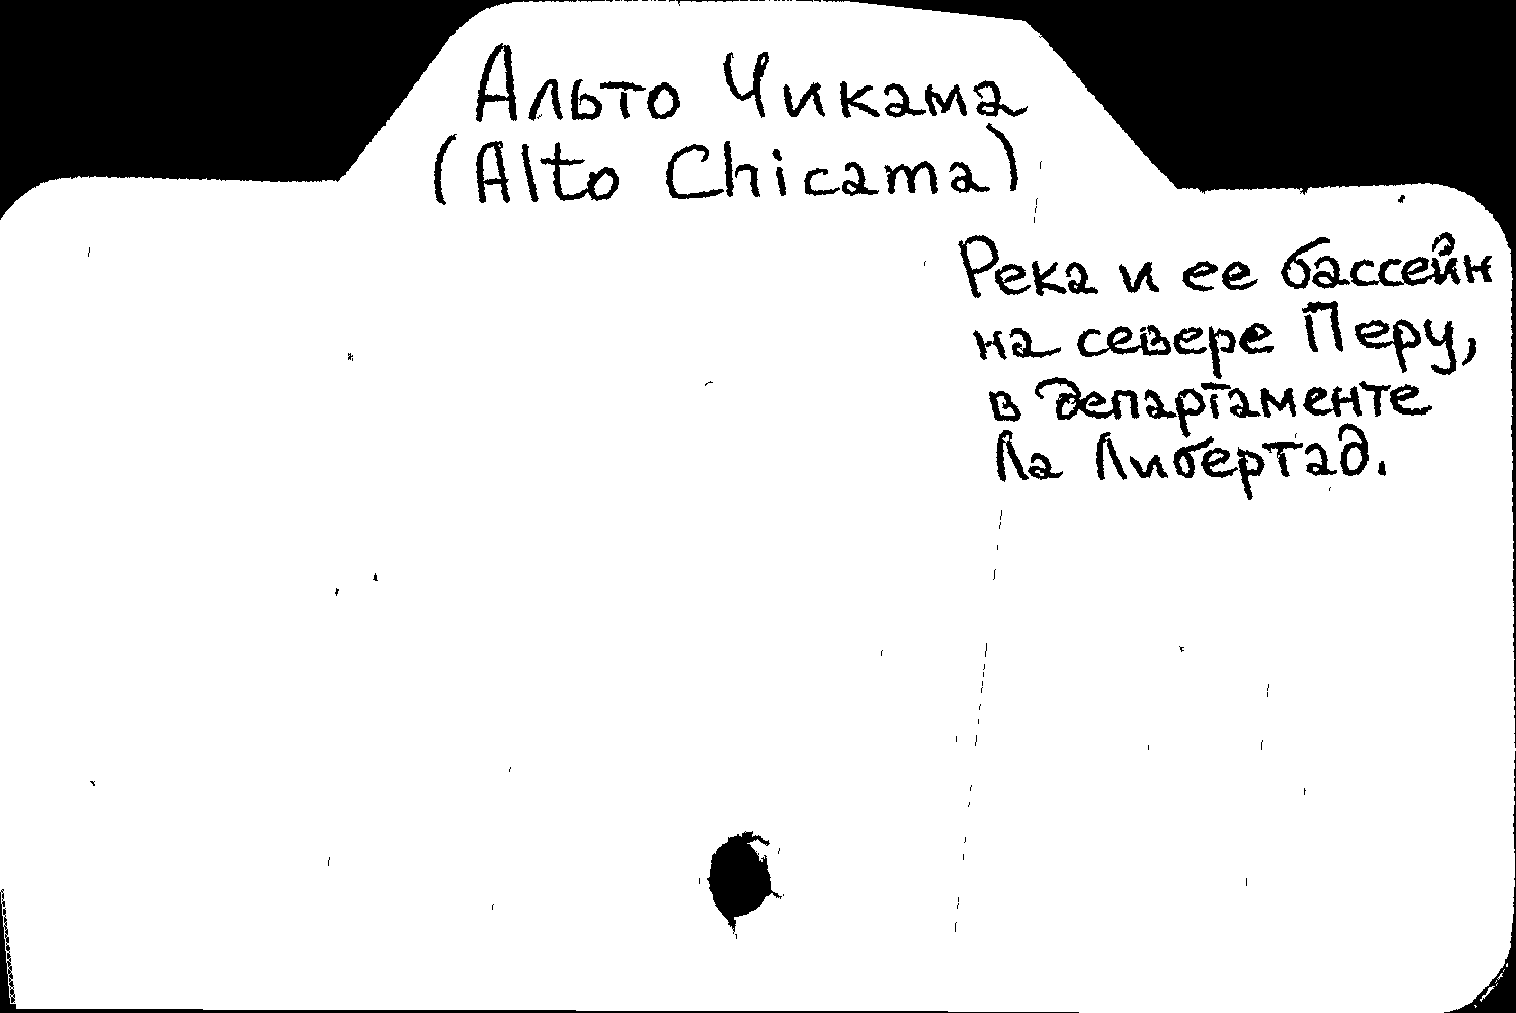 Альто Чикама
(Alto Chicama)
Река и ее бассейн
на севере Перу,
в департаменте
Ла Либертад.